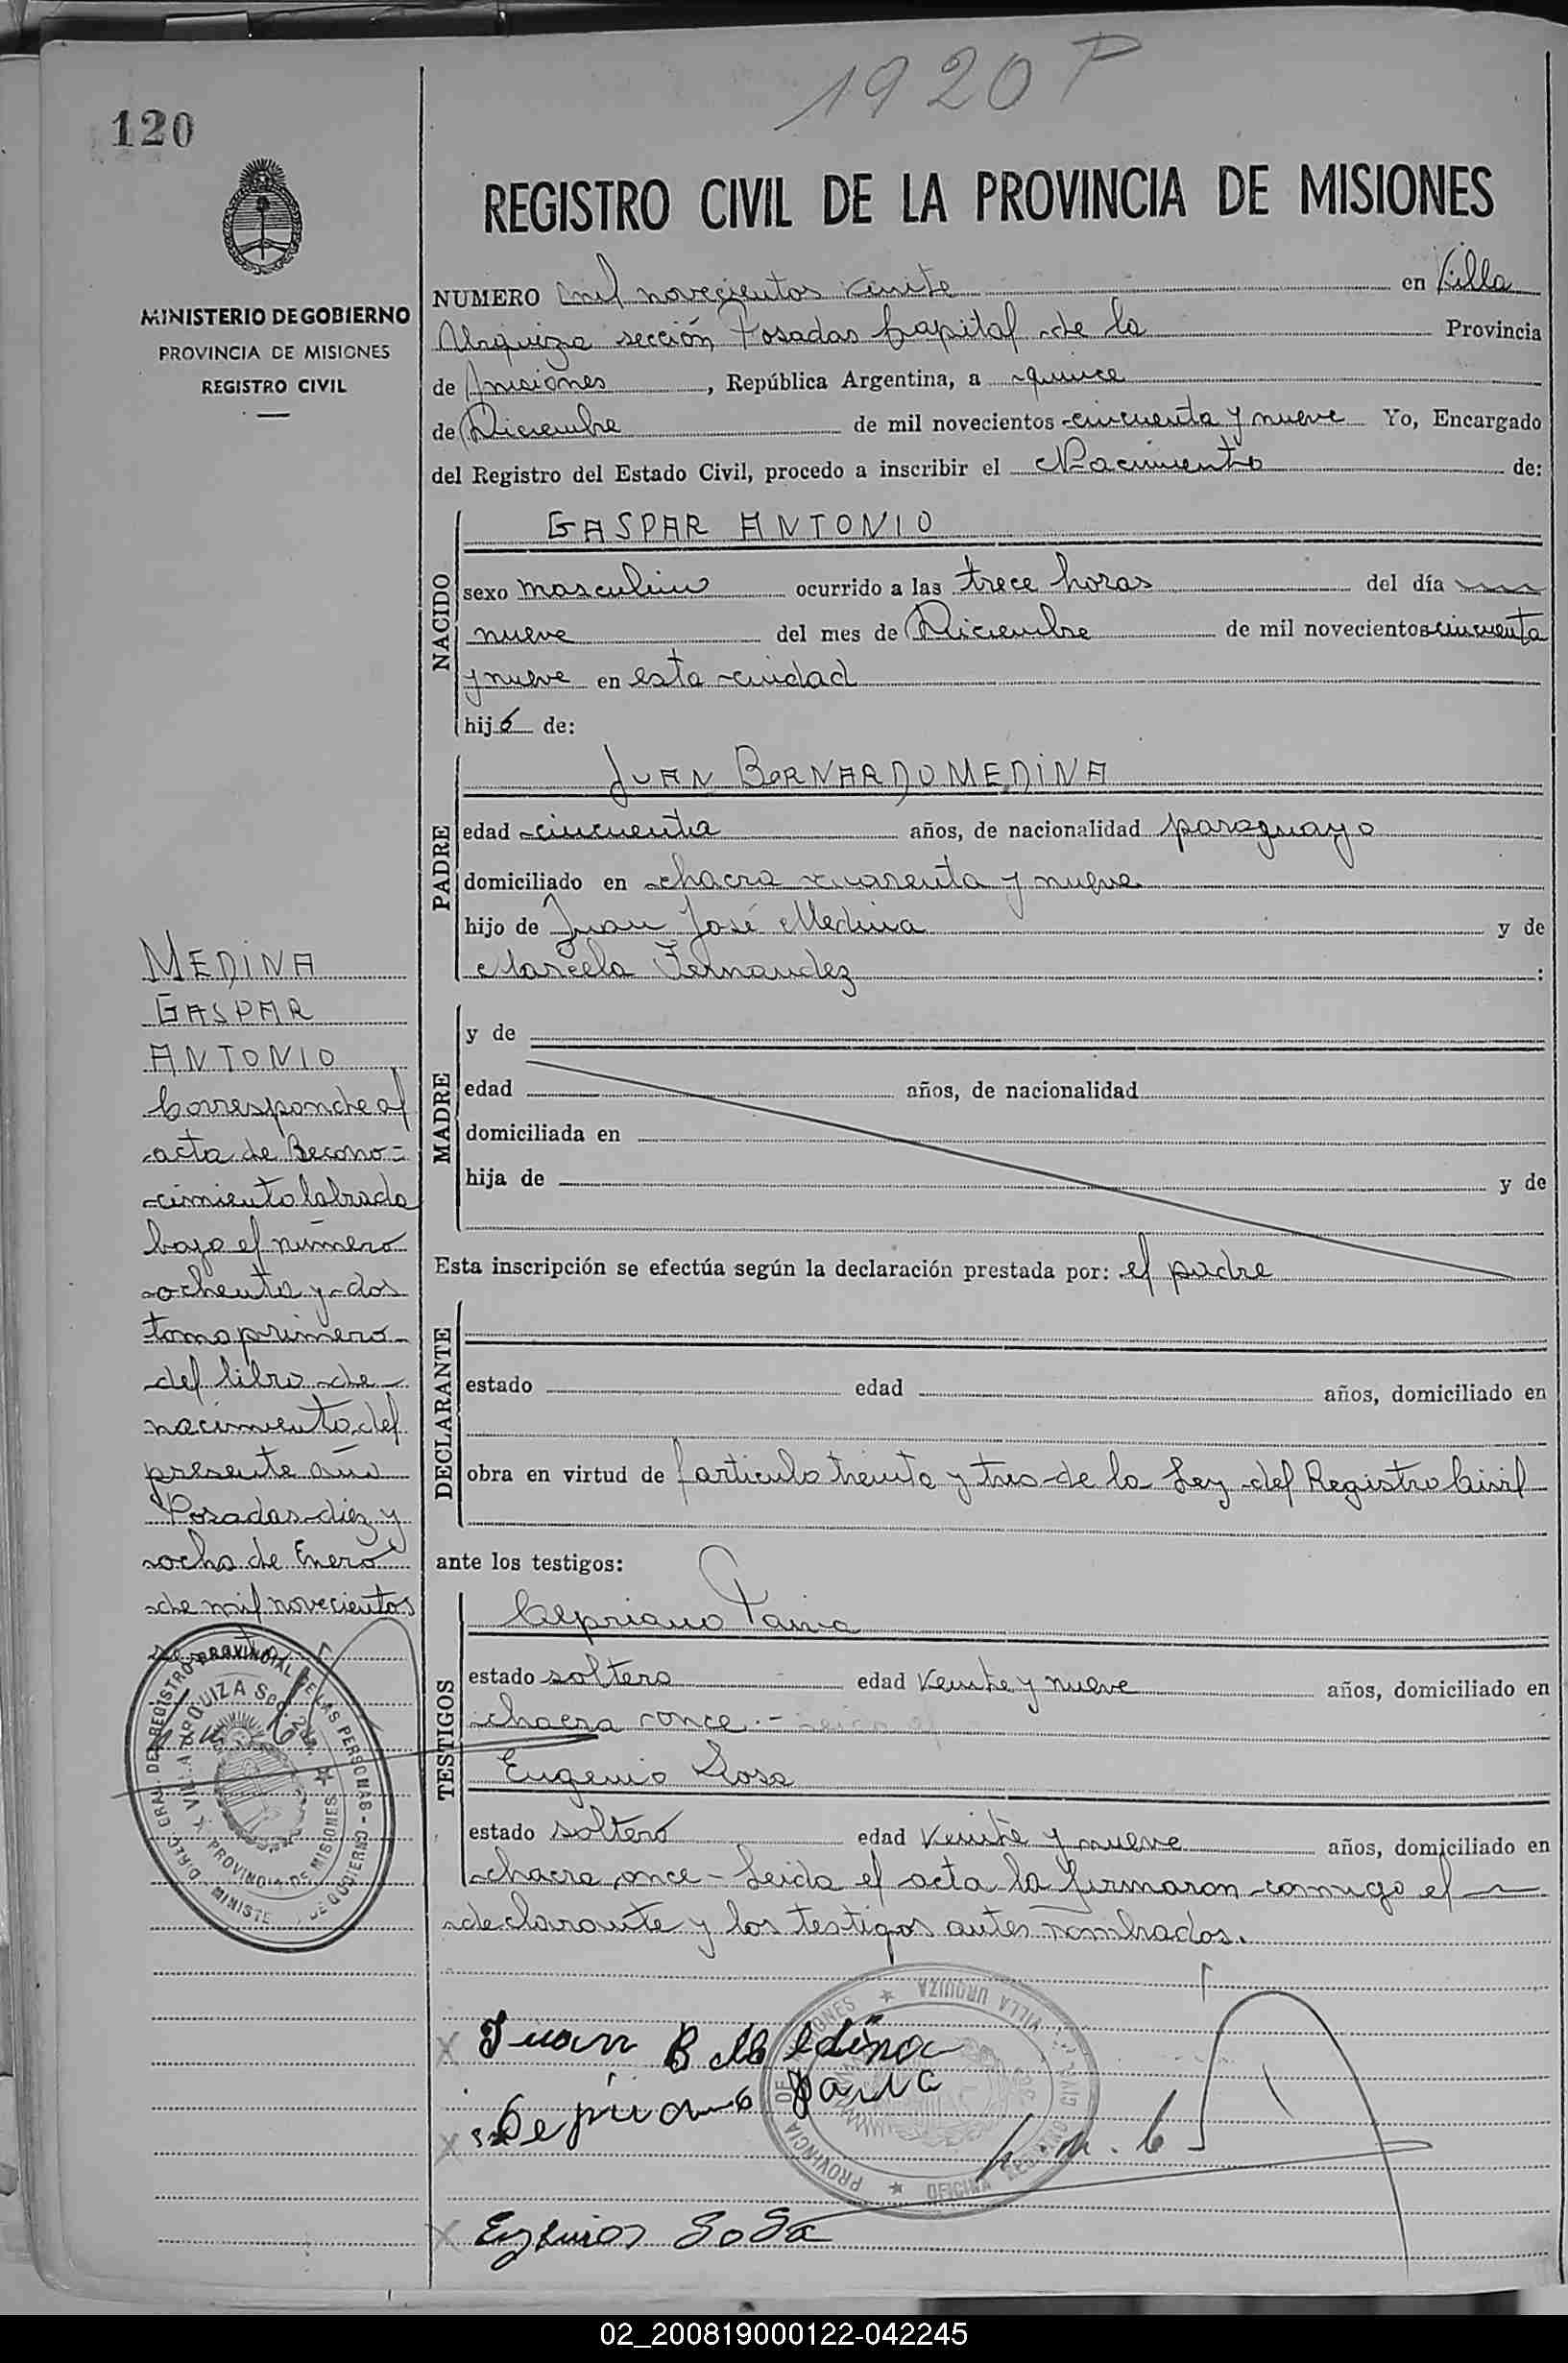 1920 P
120
REGISTRO CIVIL DE LA PROVINCIA DE MISIONES
MINISTERIO DE GOBIERNO
PROVINCIA DE MISIONES
REGISTRO CIVIL
NUMERO mil novecientos veinte en Villa
Urquiza sección Posadas Capital de la Provincia
de Misiones, República Argentina, a quince
de Diciembre de mil novecientos cincuenta y nueve Yo, Encargado
del Registro del Estado Civil, procedo a inscribir el Nacimiento de:
NACIDO
GASPAR ANTONIO
sexo masculino ocurrido a las trece horas del día
nueve del mes de Diciembre de mil novecientos cincuenta
y nueve en esta ciudad
hijo de:
PADRE
JUAN BERNARDO MEDINA
edad cincuenta años, de nacionalidad paraguayo
domiciliado en chacra cuarenta y nueve
hijo de Juan José Medina y de
Marcela Fernandez :
MADRE
y de
edad años, de nacionalidad
domiciliada en
hija de y de
Esta inscripción se efectúa según la declaración prestada por: el padre
DECLARANTE
estado edad años, domiciliado en
obra en virtud de articulo treinta y tres de la Ley del Registro Civil
ante los testigos:
TESTIGOS
Cepriano Paiva
estado soltero edad veinte y nueve años, domiciliado en
chacra once.-
Eugenio Sosa
estado soltero edad veinte y nueve años, domiciliado en
chacra once - Leida el acta la firmaron conmigo el
declarante y los testigos antes nombrados.
Juan B Medina
Cepriano Paiva
Eugenio Sosa
MEDINA
GASPAR
ANTONIO
Corresponde al
acta de Recono=
cimiento labrada
bajo el número
ochenta y dos
tomo primero
del libro de
nacimiento del
presente año
Posadas diez y
ocho de Enero
de mil novecientos
DIREC. GRAL. DEL REGISTRO PROVINCIAL DE LAS PERSONAS - MINISTE DE GOBIERNO
VILLA URQUIZA
PROVINCIA DE MISIONES
VILLA URQUIZA
PROVINCIA DE MISIONES
OFICINA REGISTRO CIVIL
02_200819000122-042245